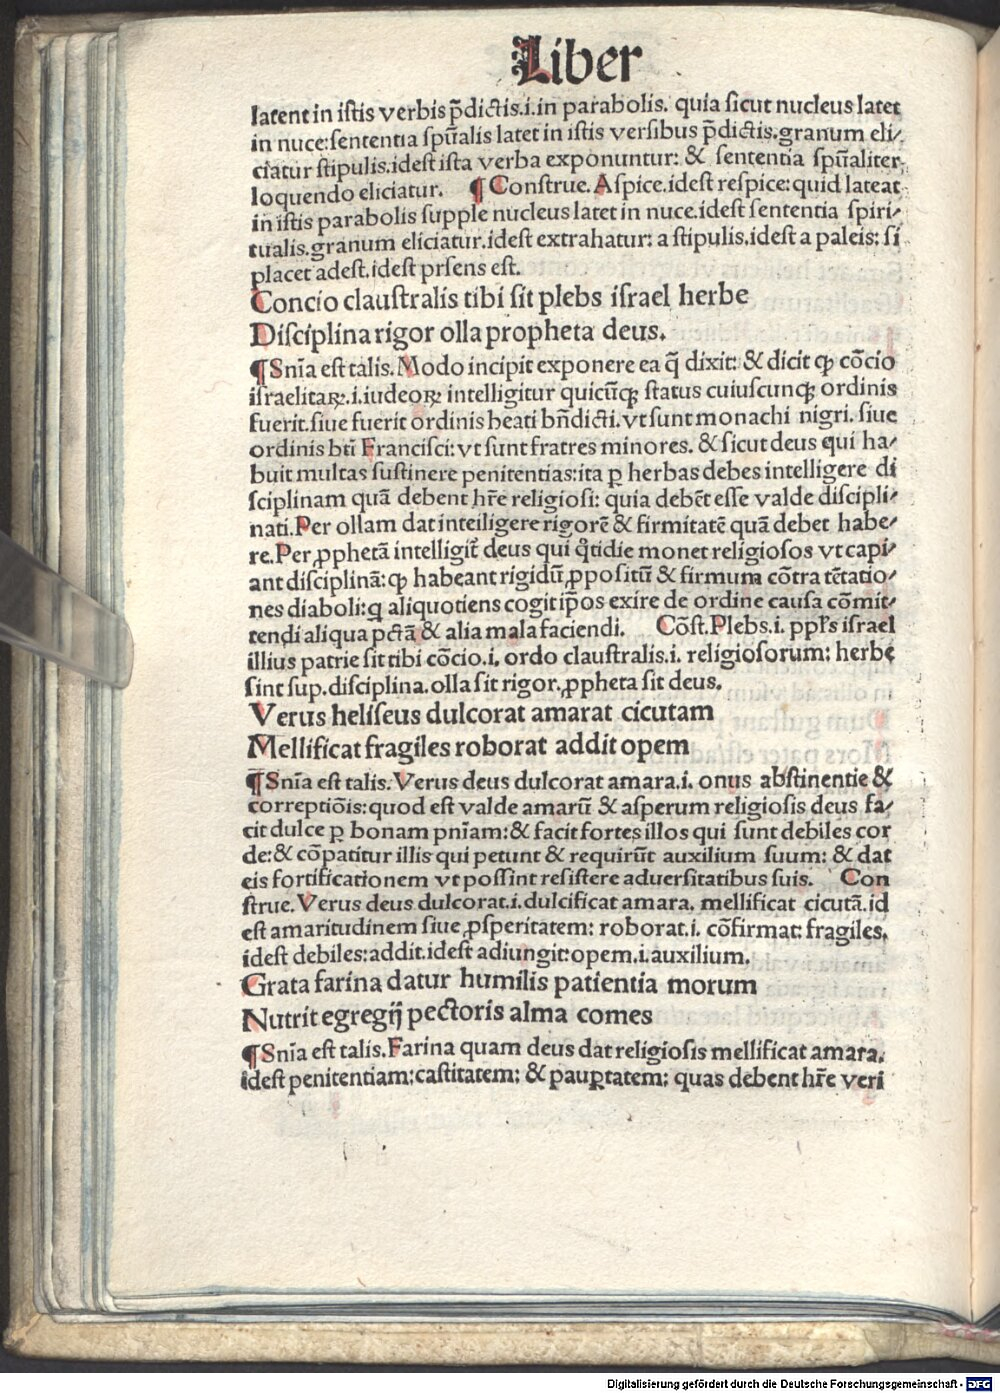 Liber
latent in iſtis verbis p̄dictis.i.in parabolis. quia ſicut nucleus latet
in nuce:ſententia ſpūalis latet in iſtis verſibus p̄dictis.granum eli⸗
ciatur ſtipulis.ideſt iſta verba exponuntur: & ſententia ſpūaliter
loquendo eliciatur. ¶ Conſtrue. Aſpice.ideſt reſpice:quid lateat
in iſtis parabolis ſupple nucleus latet in nuce.ideſt ſententia ſpiri⸗
tualis.granum eliciatur.ideſt extrahatur: a ſtipulis.ideſt a paleis: ſi
placet adeſt.ideſt prſens eſt.
Concio clauſtralis tibi ſit plebs iſrael herbe
Diſciplina rigor olla propheta deus.
¶ Snīa eſt talis. Modo incipit exponere ea q̄ dixit: & dicit ꝙ cōcio
iſraelitaꝝ.i.iudeoꝝ intelligitur quicūqꝫ ſtatus cuiuſcunqꝫ ordinis
fuerit.ſiue fuerit ordinis beati bn̄dicti.vt ſunt monachi nigri. ſiue
ordinis bti̅ Franciſci: vt ſunt fratres minores. & ſicut deus qui ha⸗
buit multas ſuſtinere penitentias:ita ꝑ herbas debes intelligere di
ſciplinam quā debent hr̄e religioſi: quia debēt eſſe valde diſcipli⸗
nati.Per ollam dat inteiligere rigorē & firmitatē quā debet habe⸗
re.Per ꝓphetā intelligit̄ deus qui q̊tidie monet religioſos vt capi⸗
ant diſciplinā:ꝙ habeant rigidū ꝓpoſitū & firmum cōtra tētatio⸗
nes diaboli:q̄ aliquotiens cogit ip̄os exire de ordine cauſa cōmit⸗
tendi aliqua pctā & alia mala faciendi. Cōſt.Plebs.i. ppl̄s iſrael
illius patrie ſit tibi cōcio.i. ordo clauſtralis.i. religioſorum: herbe
ſint ſup.diſciplina.olla ſit rigor.ꝓpheta ſit deus.
Verus heliſeus dulcorat amarat cicutam
Mellificat fragiles roborat addit opem
¶ Snīa eſt talis. Verus deus dulcorat amara.i. onus abſtinentie &
correptiōis:quod eſt valde amarū & aſperum religioſis deus fa⸗
cit dulce ꝑ bonam pnīam:& facit fortes illos qui ſunt debiles cor
de:& cōpatitur illis qui petunt & requirūt auxilium ſuum: & dat
eis fortificationem vt poſſint reſiſtere aduerſitatibus ſuis. Con
ſtrue. Verus deus dulcorat.i.dulcificat amara. mellificat cicutā.id
eſt amaritudinem ſiue ꝓſperitatem: roborat.i. cōfirmat: fragiles.
ideſt debiles:addit.ideſt adiungit:opem.i.auxilium.
Grata farina datur humilis patientia morum
Nutrit egregij pectoris alma comes
¶ Snīa eſt talis. Farina quam deus dat religioſis mellificat amara.
ideſt penitentiam:caſtitatem: & pauꝑtatem: quas debent hr̄e veri
Digitalisierung gefördert durch die Deutsche Forschungsgemeinschaft - DFG